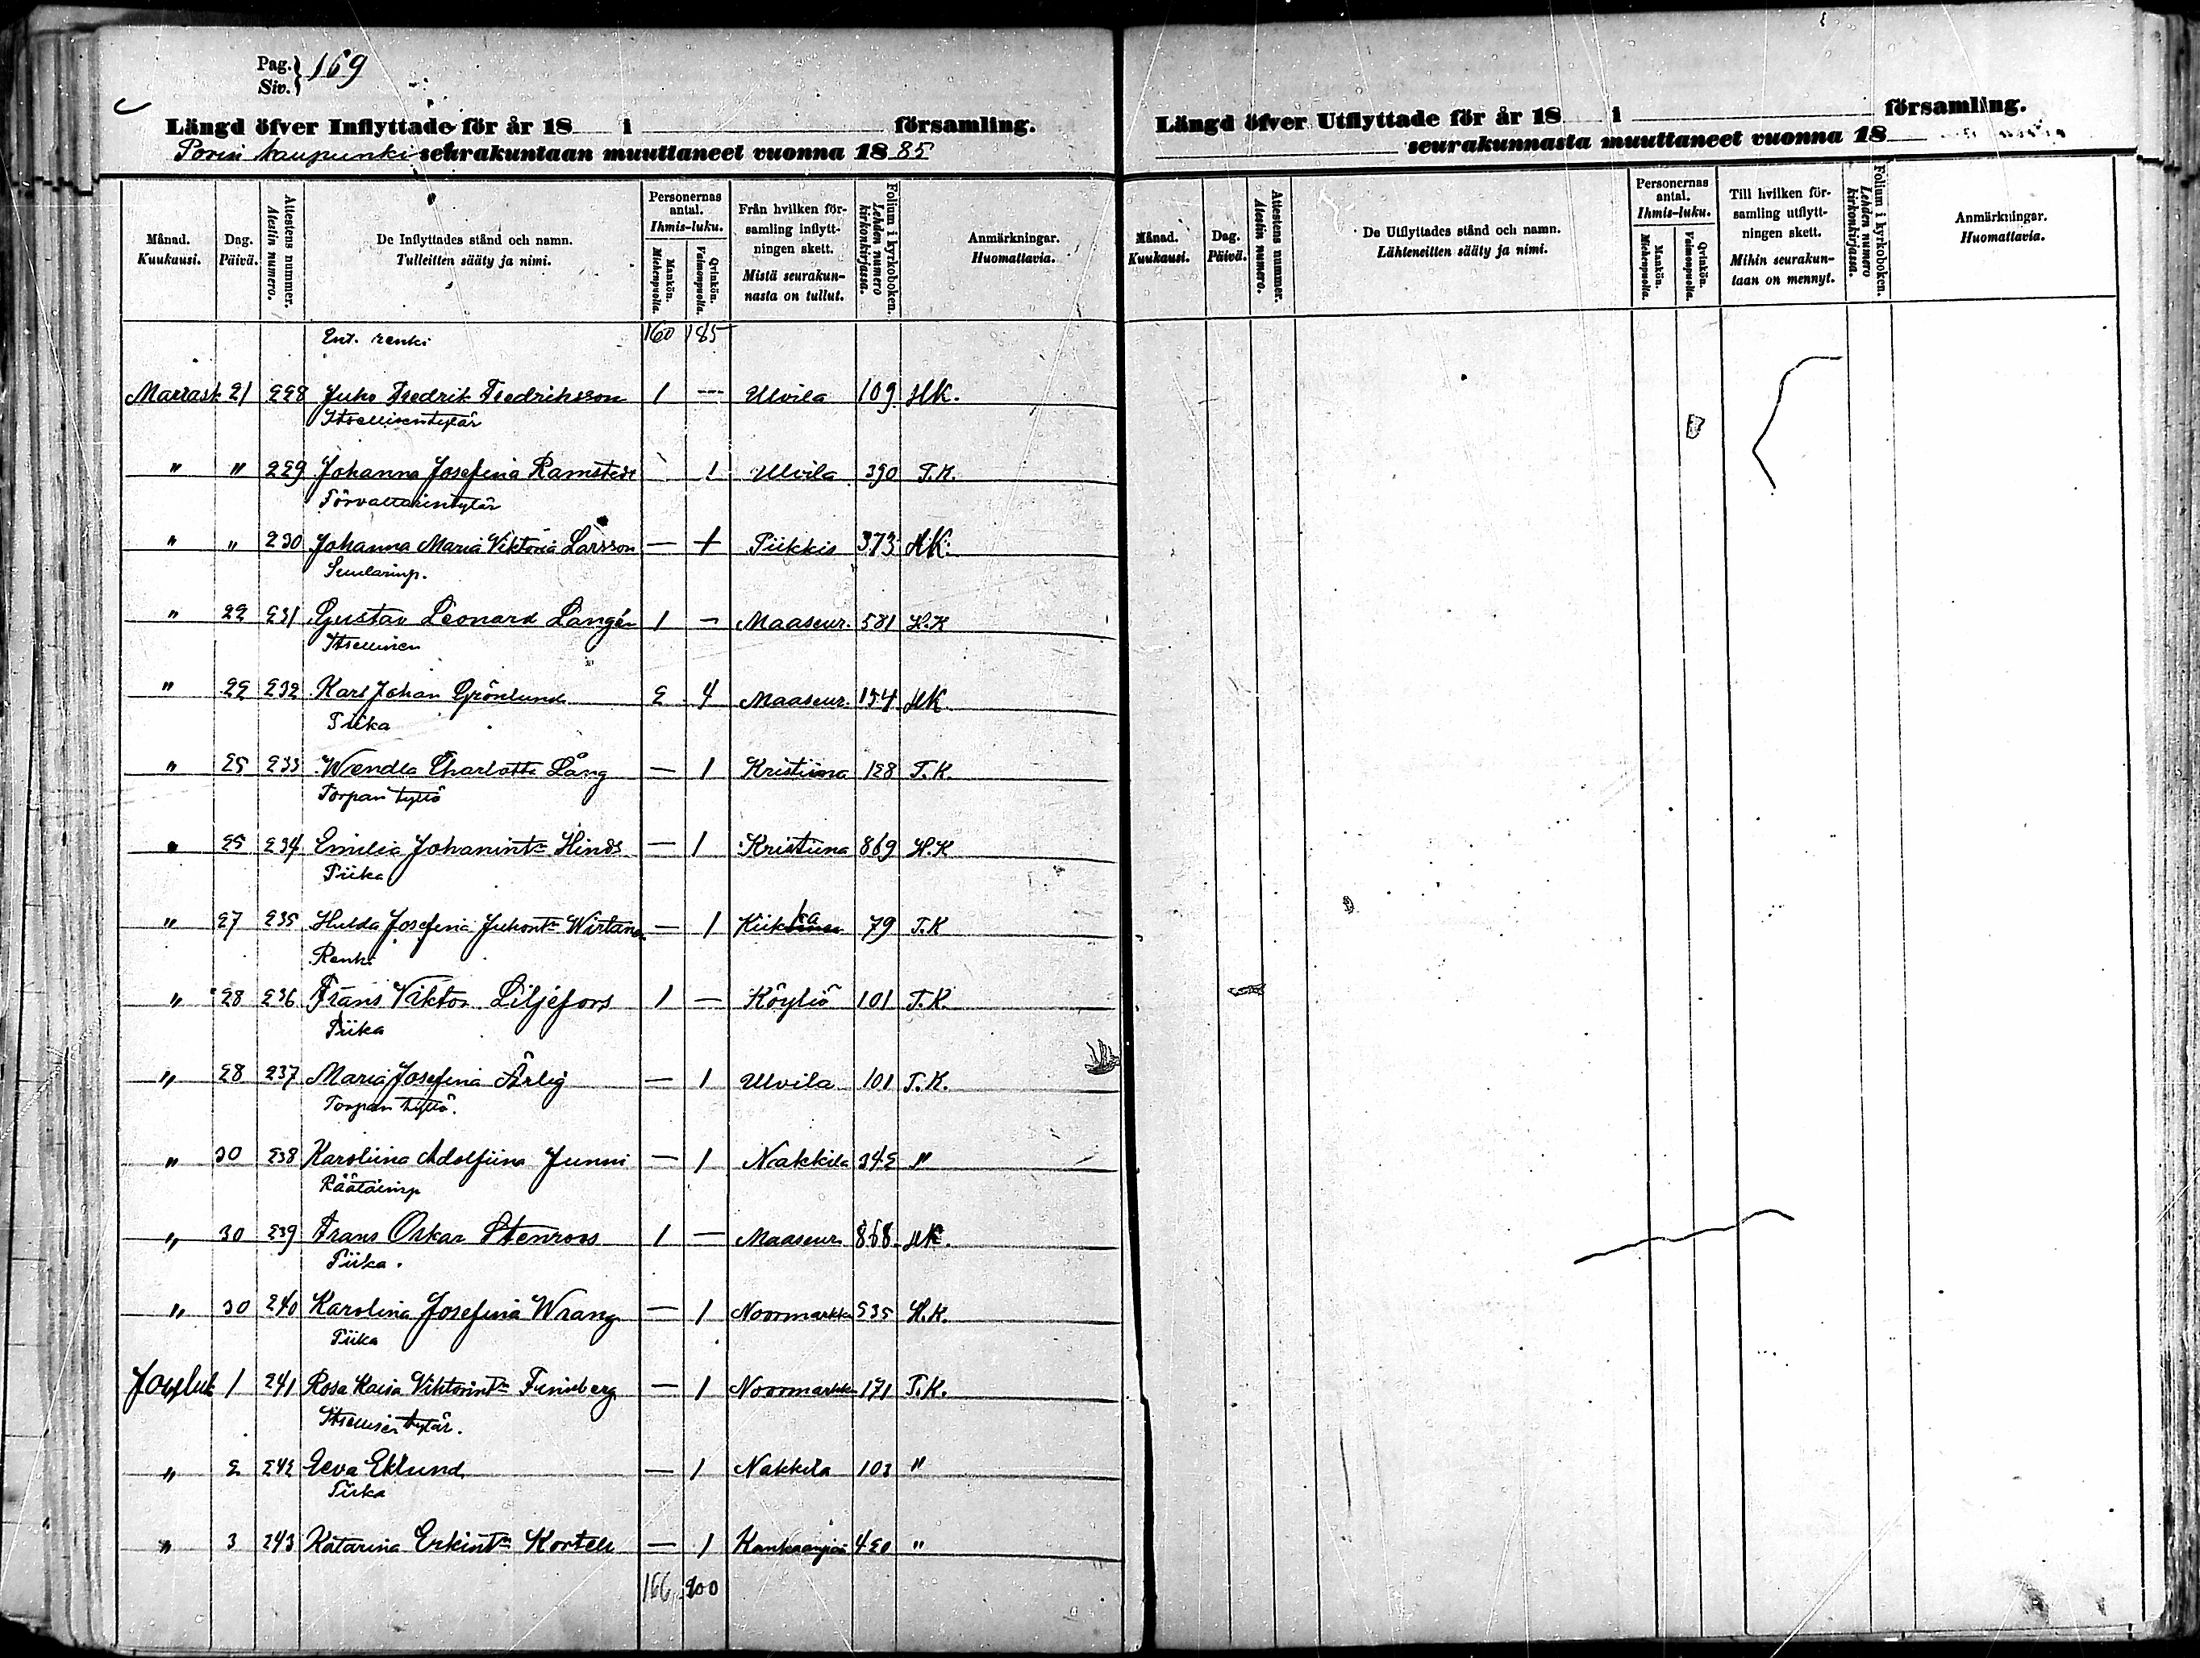 Pag.
Siv. 169
Längd öfver Inflyttade för år 18 i församling.
Porin kaupunki seurakuntaan muuttaneet vuonna 1885
Månad. Kuukausi. Dag. Päivä. Attestens nummer. Atestin numero. De Inflyttades stånd och namn. Tulleitten sääty ja nimi. Personernas antal. Ihmis-luku. Mankön. Miehenpuolia. Qvinkön. Vaimonpuolia. Från hvilken församling inflyttningen skett. Mistä seurakunnasta on tullut. Folium i kyrkoboken. Lehden numero kirkonkirjassa. Anmärkningar. Huomattavia.
Ent. renki 160 185
Marrask 21 228 Juho Fredrik Fredriksson 1 — Ulvila 109 HK.
Itsellisentytär
" " 229 Johanna Josefina Ramstedt 1 Ulvila 390 T.K.
Förvaltarintytär
" " 230 Johanna Maria Viktoria Larsson — 1 Piikkis 373 HK.
Suutarinp.
" 22 231 Gustav Leonard Langén 1 — Maaseur. 581 H.K
Itsellinen
" 22 232 Karl Johan Grönlund 2 4 Maaseur. 154 HK
Piika
" 25 233 Wendla Charlotta Lång — 1 Kristiina 128 T.K.
Torpan tyttö
" 25 234 Emilia Johanint:r Hinds — 1 Kristiina 869 H.K
Piika
" 27 235 Hulda Josefina Juhont:r Wirtanen — 1 Kiikka 79 T.K
Renki
" 28 236 Frans Viktor Liljefors 1 — Köyliö 101 T.K.
Piika
" 28 237 Maria Josefina Ärlig — 1 Ulvila 101 T.K.
Torpan tyttö.
" 30 238 Karoliina Adolfiina Junni — 1 Nakkila 342 "
Räätälinp
" 30 239 Frans Oskar Stenroos 1 — Maaseur. 868 HK.
Piika.
" 30 240 Karolina Josefina Wrang — 1 Noormarkku 535 H.K.
Piika
Jouluk 1 241 Rosa Kaisa Viktorint:r — 1 Noormarkku 171 T.K.
Itsellisen tytär.
" 2 242 Eeva Eklund — 1 Nakkila 103 "
Piika
" 3 243 Katarina Erkint:r — 1 Kankaanpää 420 "
166 200
Längd öfver Utflyttade för år 18 i församling.
seurakunnasta muuttaneet vuonna 18
Månad. Kuukausi. Dag. Päivä. Attestens nummer. Atestin numero. De Utflyttades stånd och namn. Lähteneitten sääty ja nimi. Personernas antal. Ihmis-luku. Mankön. Miehenpuolia. Qvinkön. Vaimonpuolia. Till hvilken församling utflyttningen skett. Mihin seurakuntaan on mennyt. Folium i kyrkoboken. Lehden numero kirkonkirjassa. Anmärkningar. Huomattavia.